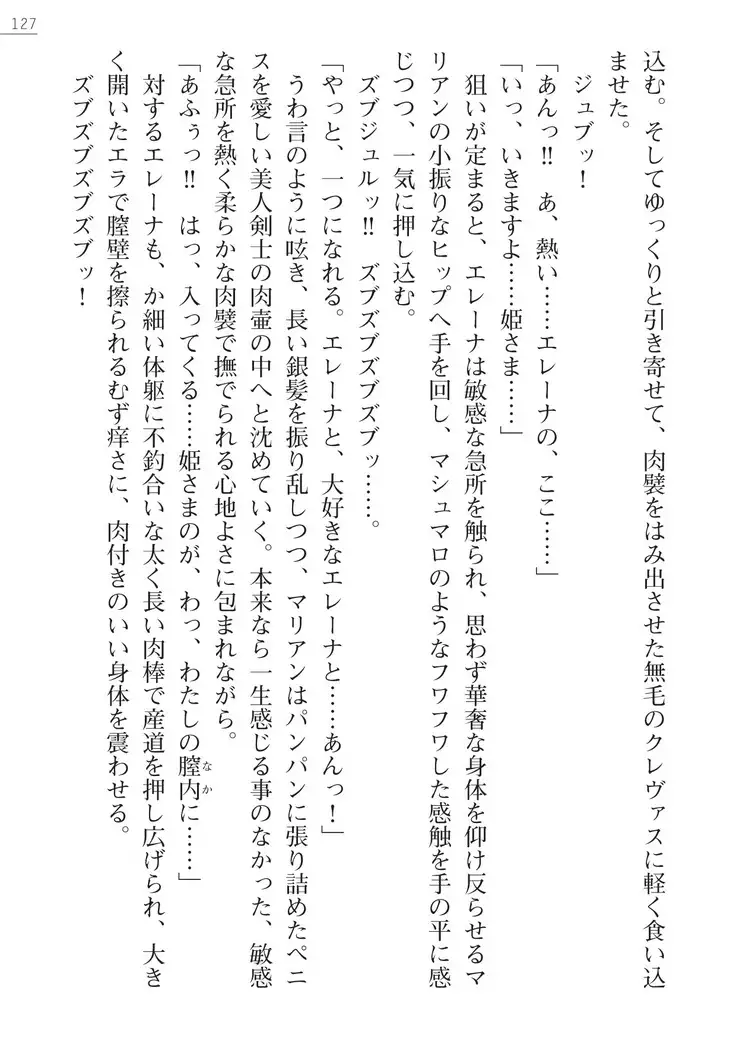 127
込む。そしてゆっくりと引き寄せて、肉襞をはみ出させた無毛のクレヴァスに軽く食い込
ませた。
ジュブッ！
「あんっ‼　あ、熱い……エレーナの、ここ……」
「いっ、いきますよ……姫さま……」
狙いが定まると、エレーナは敏感な急所を触られ、思わず華奢な身体を仰け反らせるマ
リアンの小振りなヒップへ手を回し、マシュマロのようなフワフワした感触を手の平に感
じつつ、一気に押し込む。
ズブジュルッ‼　ズブズブズブズブッ……。
「やっと、一つになれる。エレーナと、大好きなエレーナと……あんっ！」
うわ言のように呟き、長い銀髪を振り乱しつつ、マリアンはパンパンに張り詰めたペニ
スを愛しい美人剣士の肉壷の中へと沈めていく。本来なら一生感じる事のなかった、敏感
な急所を熱く柔らかな肉襞で撫でられる心地よさに包まれながら。
「あふぅっ‼　はっ、入ってくる……姫さまのが、わっ、わたしの膣内なかに……」
対するエレーナも、か細い体躯に不釣合いな太く長い肉棒で産道を押し広げられ、大き
く開いたエラで膣壁を擦られるむず痒さに、肉付きのいい身体を震わせる。
ズブズブズブズブッ！